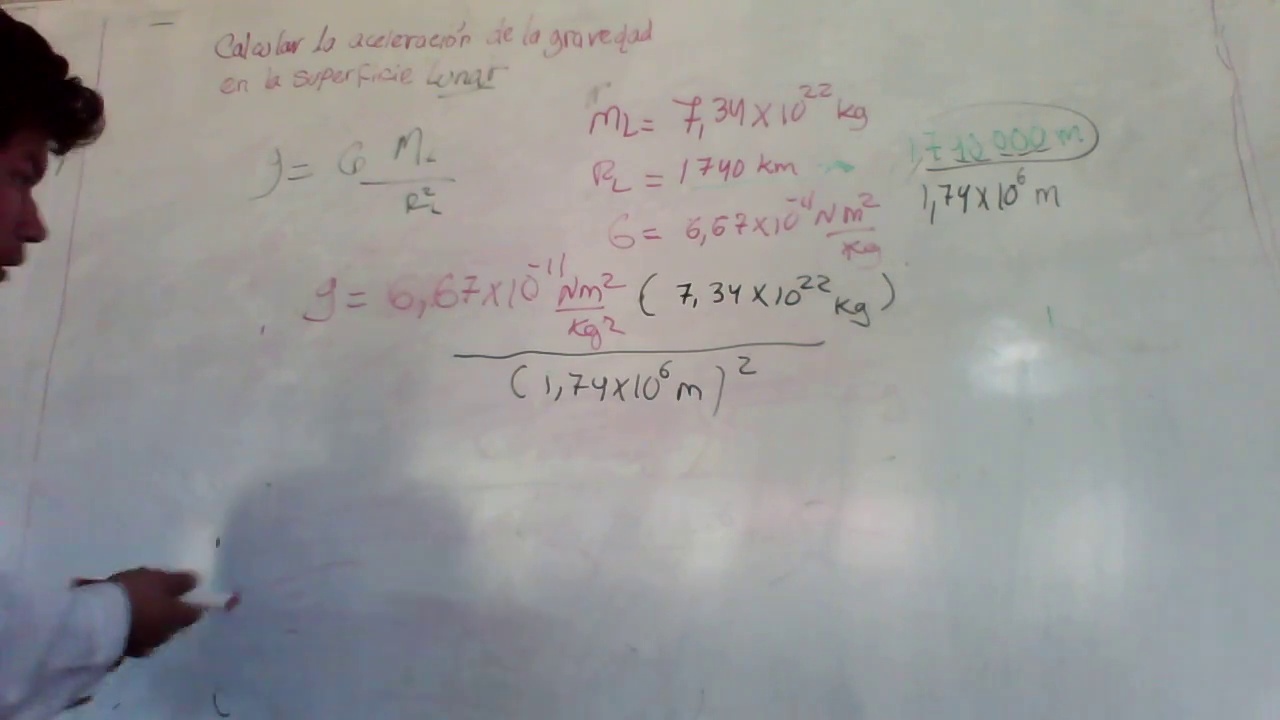 Calcular la aceleración de la gravedad
en la superficie Lunar
g = G M_L / R_L^2
m_L = 7,34 x 10^22 kg
R_L = 1740 km → 1,740 000 m
1,74 x 10^6 m
G = 6,67 x 10^-11 Nm^2 / kg
g = 6,67 x 10^-11 Nm^2 / kg^2 ( 7,34 x 10^22 kg )
( 1,74 x 10^6 m )^2